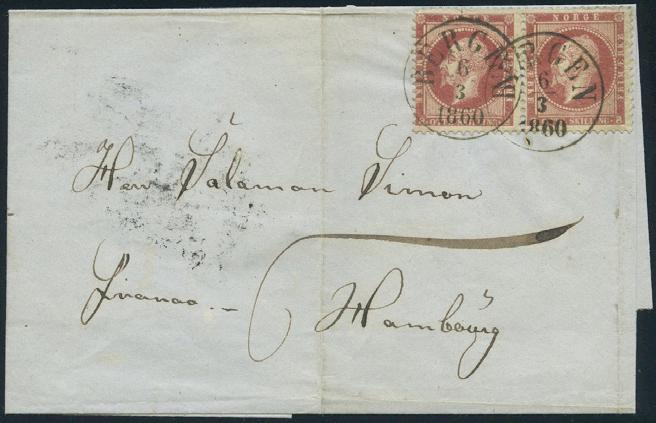 NORGE
BERGEN
6
3
1860
BERGEN
6
3
1860
Herr Salamon Simon
Franco.
Hamburg